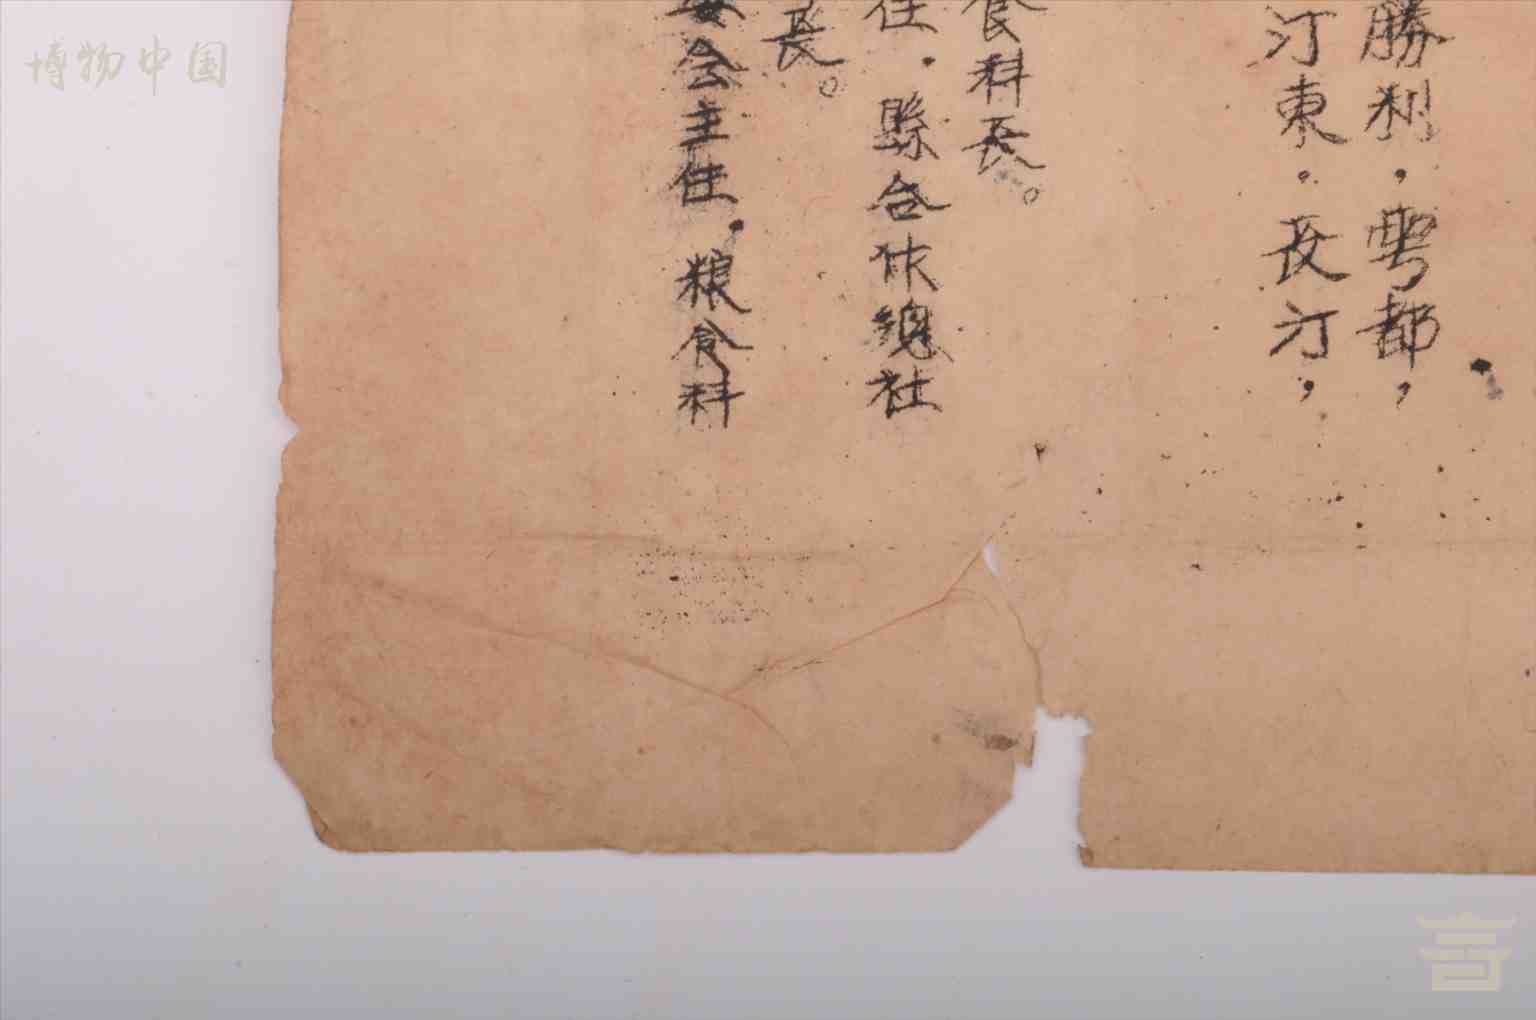 勝利，雩都，
汀東．長汀，
食科長。
任．縣合作總社
長。
委会主任．粮食科
博物中国